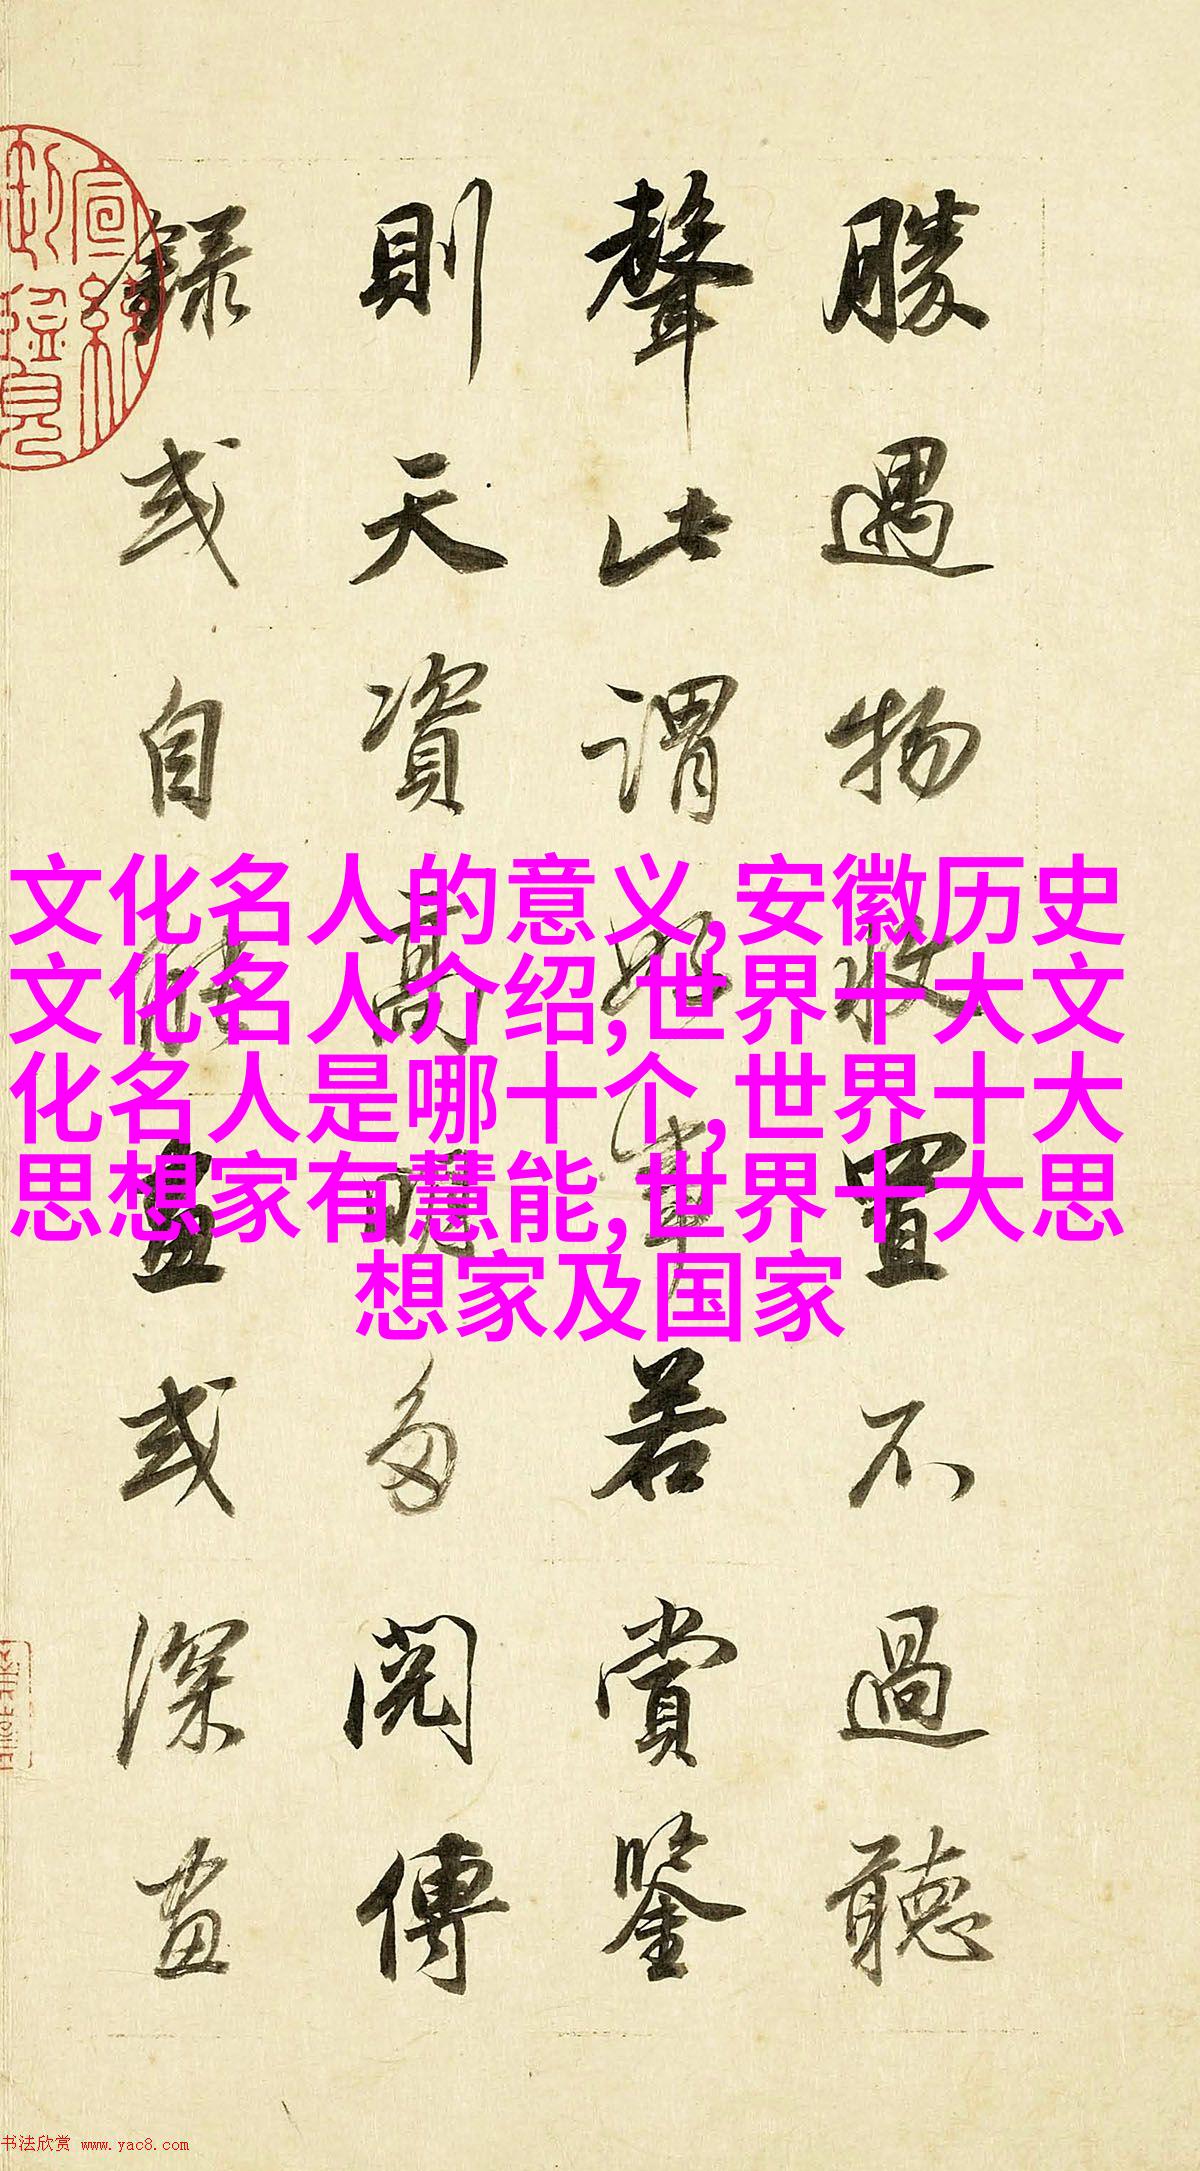 勝遇物收置不過聽
聲此謂好事若賞鑒
則天資高明多閱傳
錄或自能畫或深畫
宣統御覽
文化名人的意义,安徽历史
文化名人介绍,世界十大文
化名人是哪十个,世界十大
思想家有慧能,世界十大思
想家及国家
书法欣赏 www.yac8.com